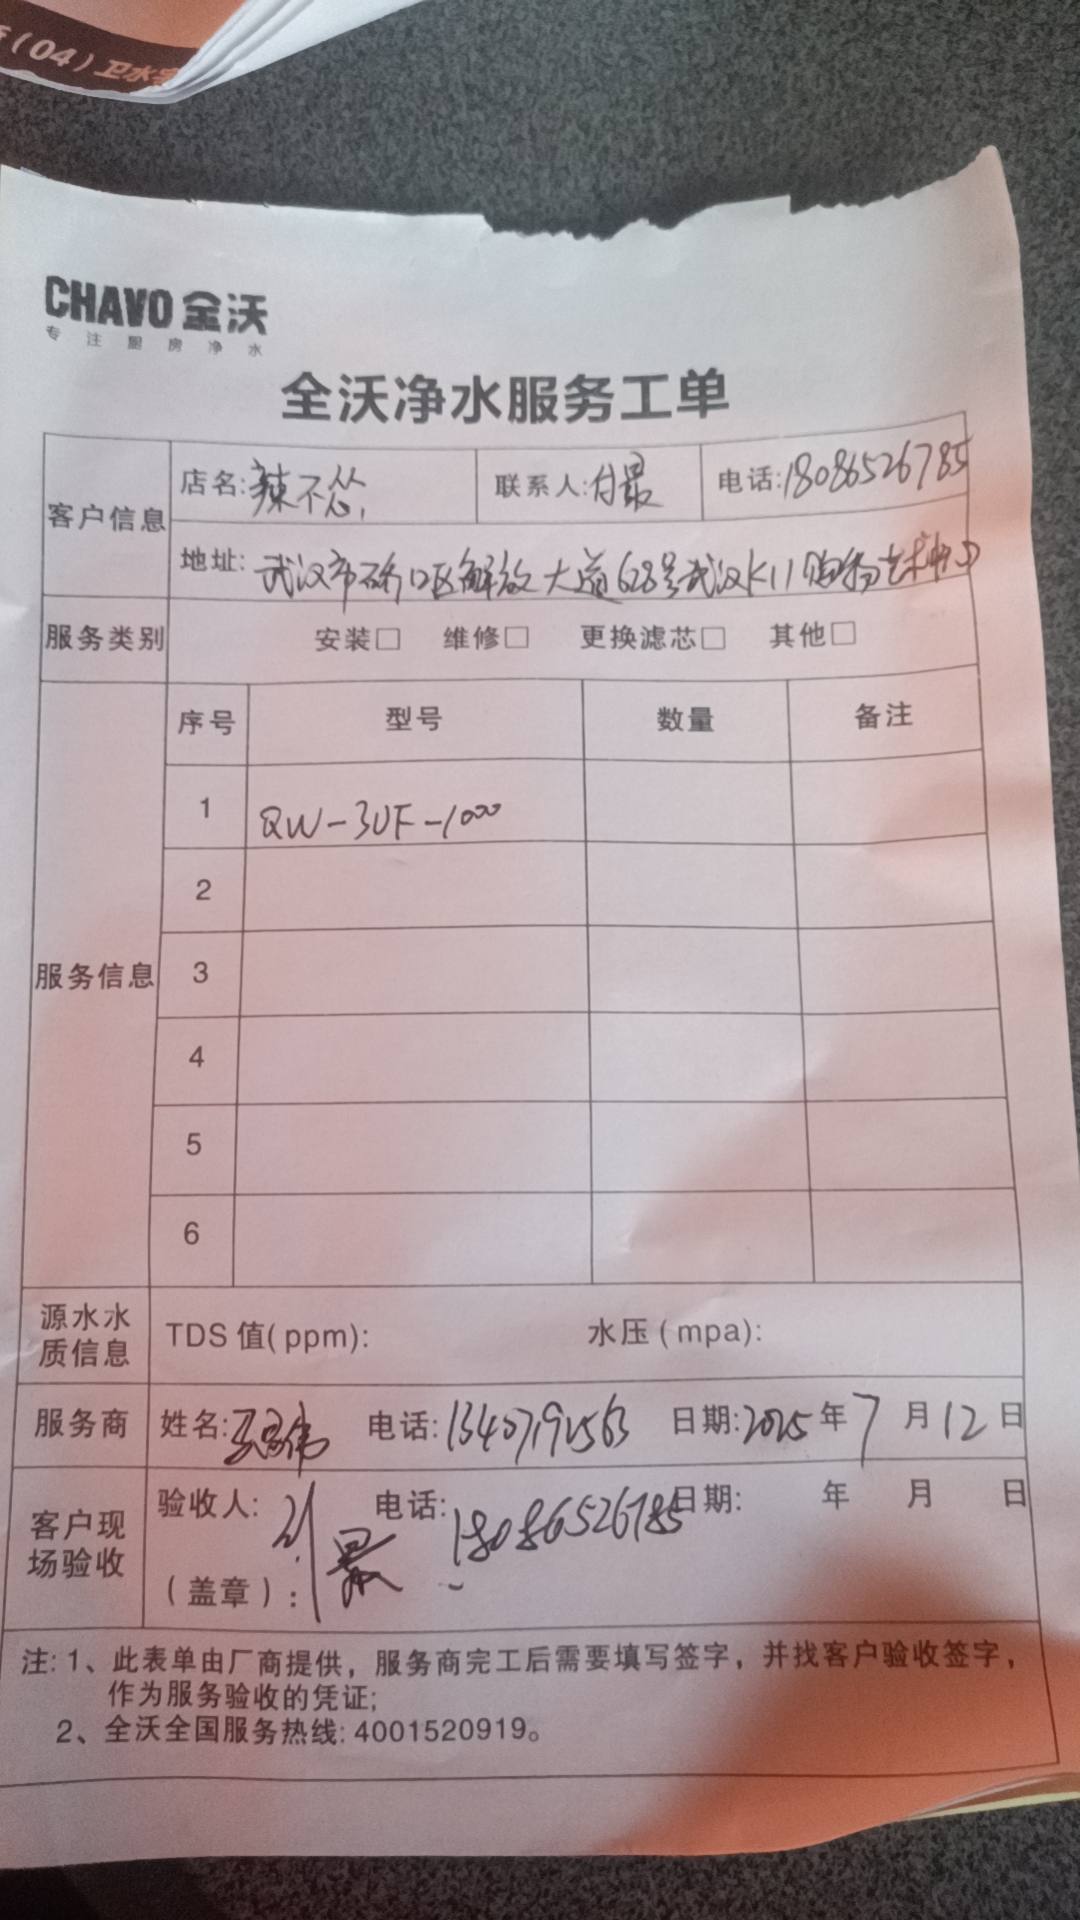 (04)卫水
CHAVO 全沃
专注厨房净水
全沃净水服务工单
客户信息 店名:辣不怂 联系人:付最 电话:18086526785
地址:武汉市硚口区解放大道628号武汉K11购物艺术中心
服务类别 安装□ 维修□ 更换滤芯□ 其他□
服务信息 序号 型号 数量 备注
1 QW-3UF-1000
2
3
4
5
6
源水水质信息 TDS 值(ppm): 水压(mpa):
服务商 姓名: 电话:13407192563 日期:2025年7月12日
客户现场验收 验收人:付最 电话:18086526785 日期: 年 月 日
(盖章):
注:1、此表单由厂商提供，服务商完工后需要填写签字，并找客户验收签字，
作为服务验收的凭证;
2、全沃全国服务热线:4001520919。